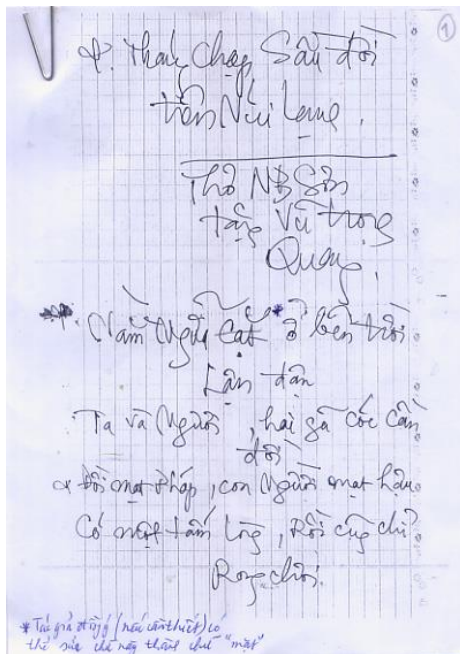 ①
Tháng Chạp Sầu đời
trên Núi Lạng.
Thơ NĐ Sơn
tặng Vũ trọng
Quang.
Nằm Ngửa Cặt * ở bên trời
Lận đận
Ta và Người, hai gã cóc cần
đời
Đời mạt Pháp, con Người mạt hậu
Có một tấm lòng, Rồi cũng chỉ
Rong chơi.
* Tác giả đồng ý (nếu cần thiết) có
thể sửa chữ này thành chữ "mặt"